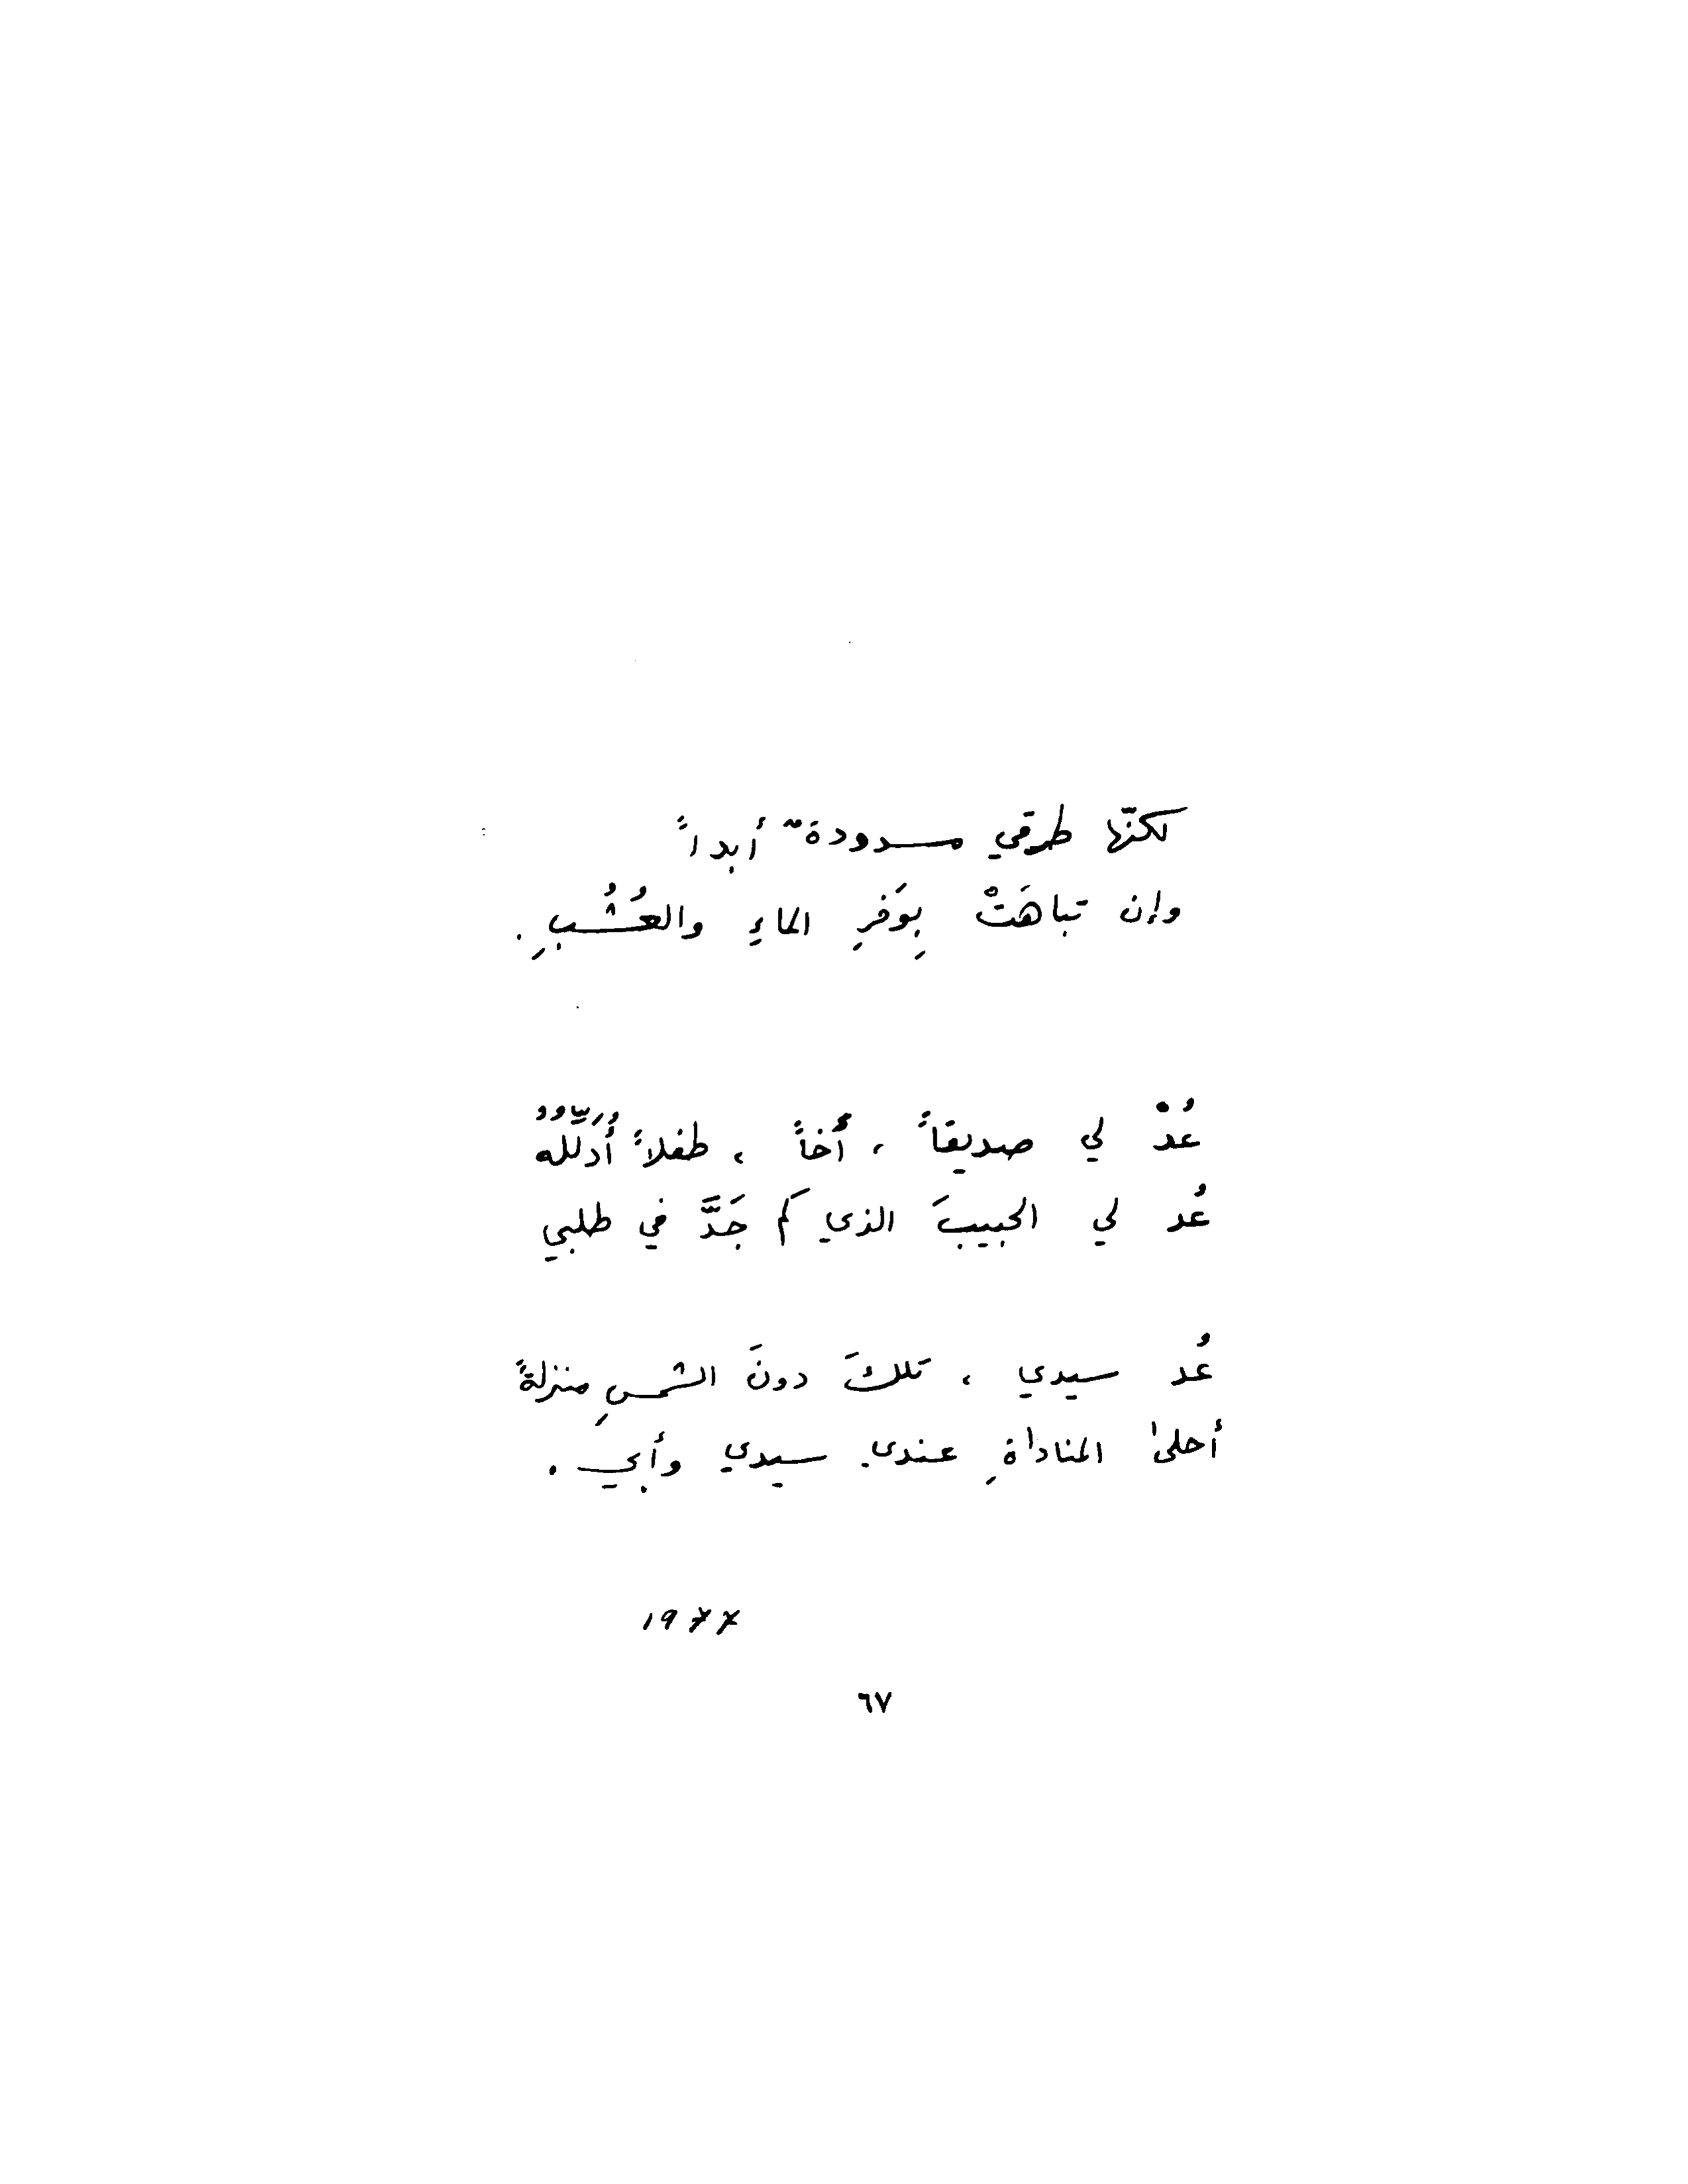 لكنّها طرقي مسدودةٌ أبداً
وإن تباهَتْ بِوَفرِ الماءِ والعُشُبِ .
عُدْ لي صديقاً ، أخاً ، طفلاً أُدَلِّلُهُ
عُد لي الحبيبَ الذي كم جَدَّ في طلبي
عُد سيدي ، تلكَ دونَ الشمسِ منزلةً
أحلىٰ المناداةِ عندي سيدي وأبي .
1977
٦٧